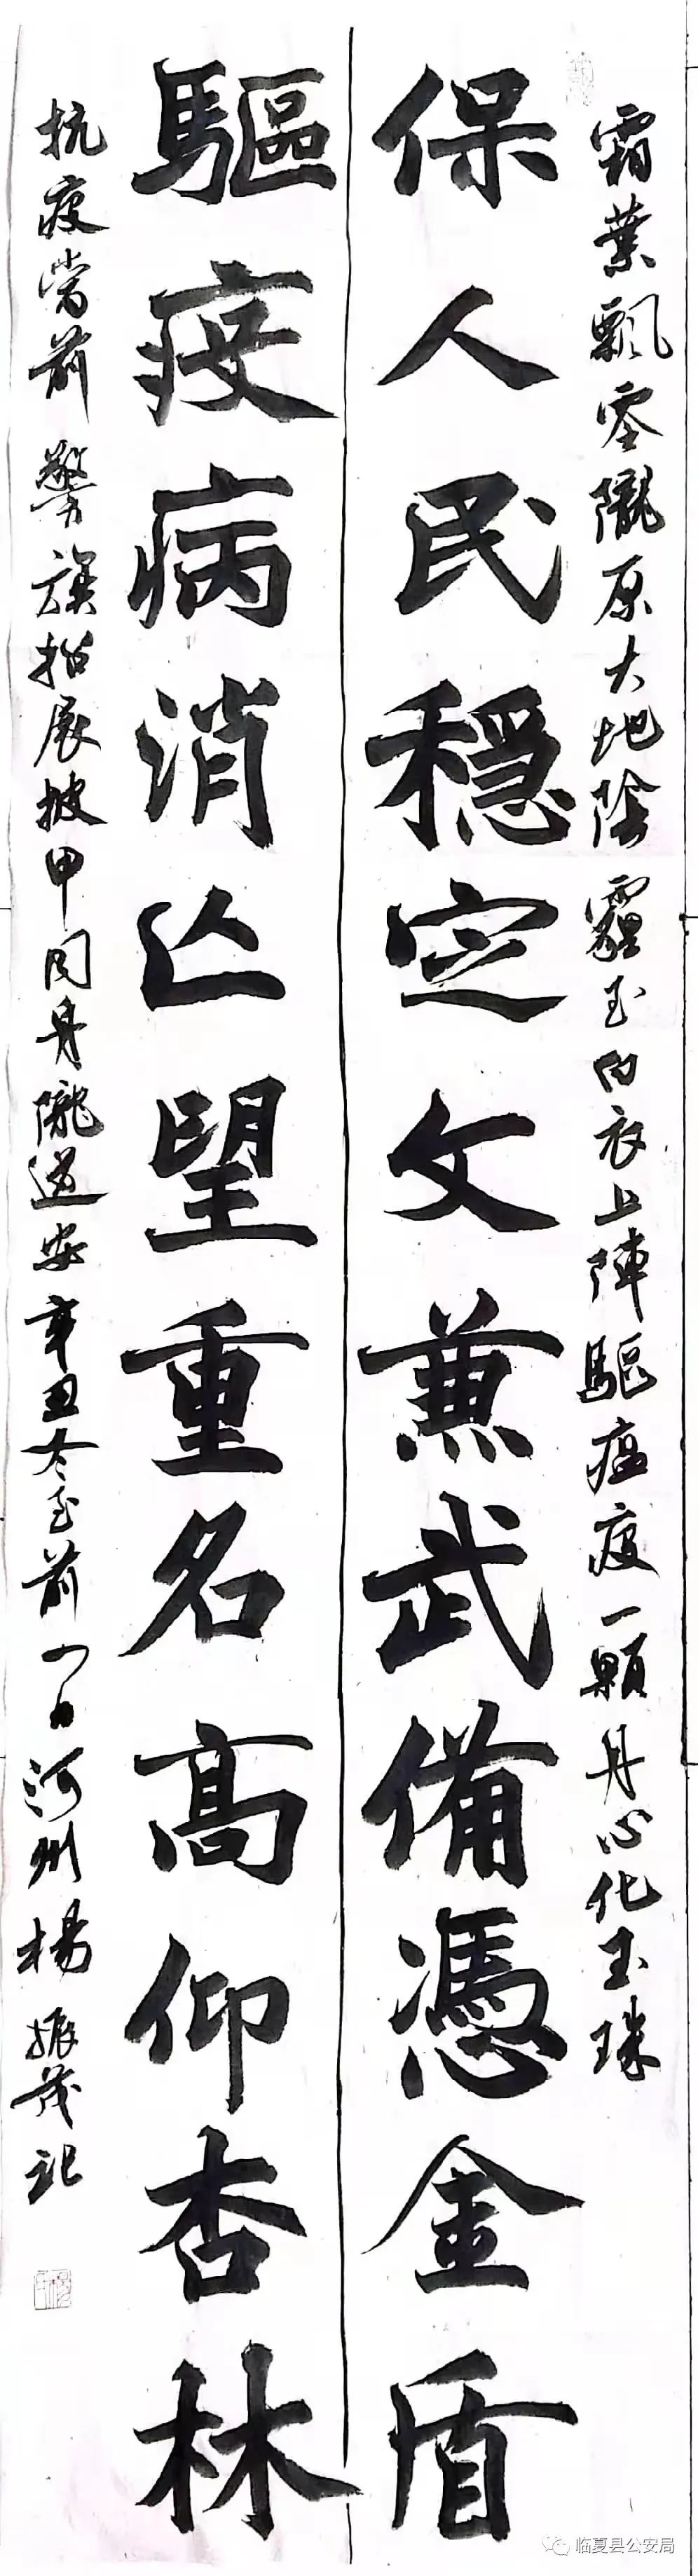 霜葉飄零隴原大地陰霾至白衣上陣驅瘟疫一顆丹心化玉珠
保人民穩定文兼武備憑金盾
驅疫病消亡望重名高仰杏林
抗疫當前警旗招展披甲同舟隴道安辛丑冬至前一日河州楊振茂記
临夏县公安局